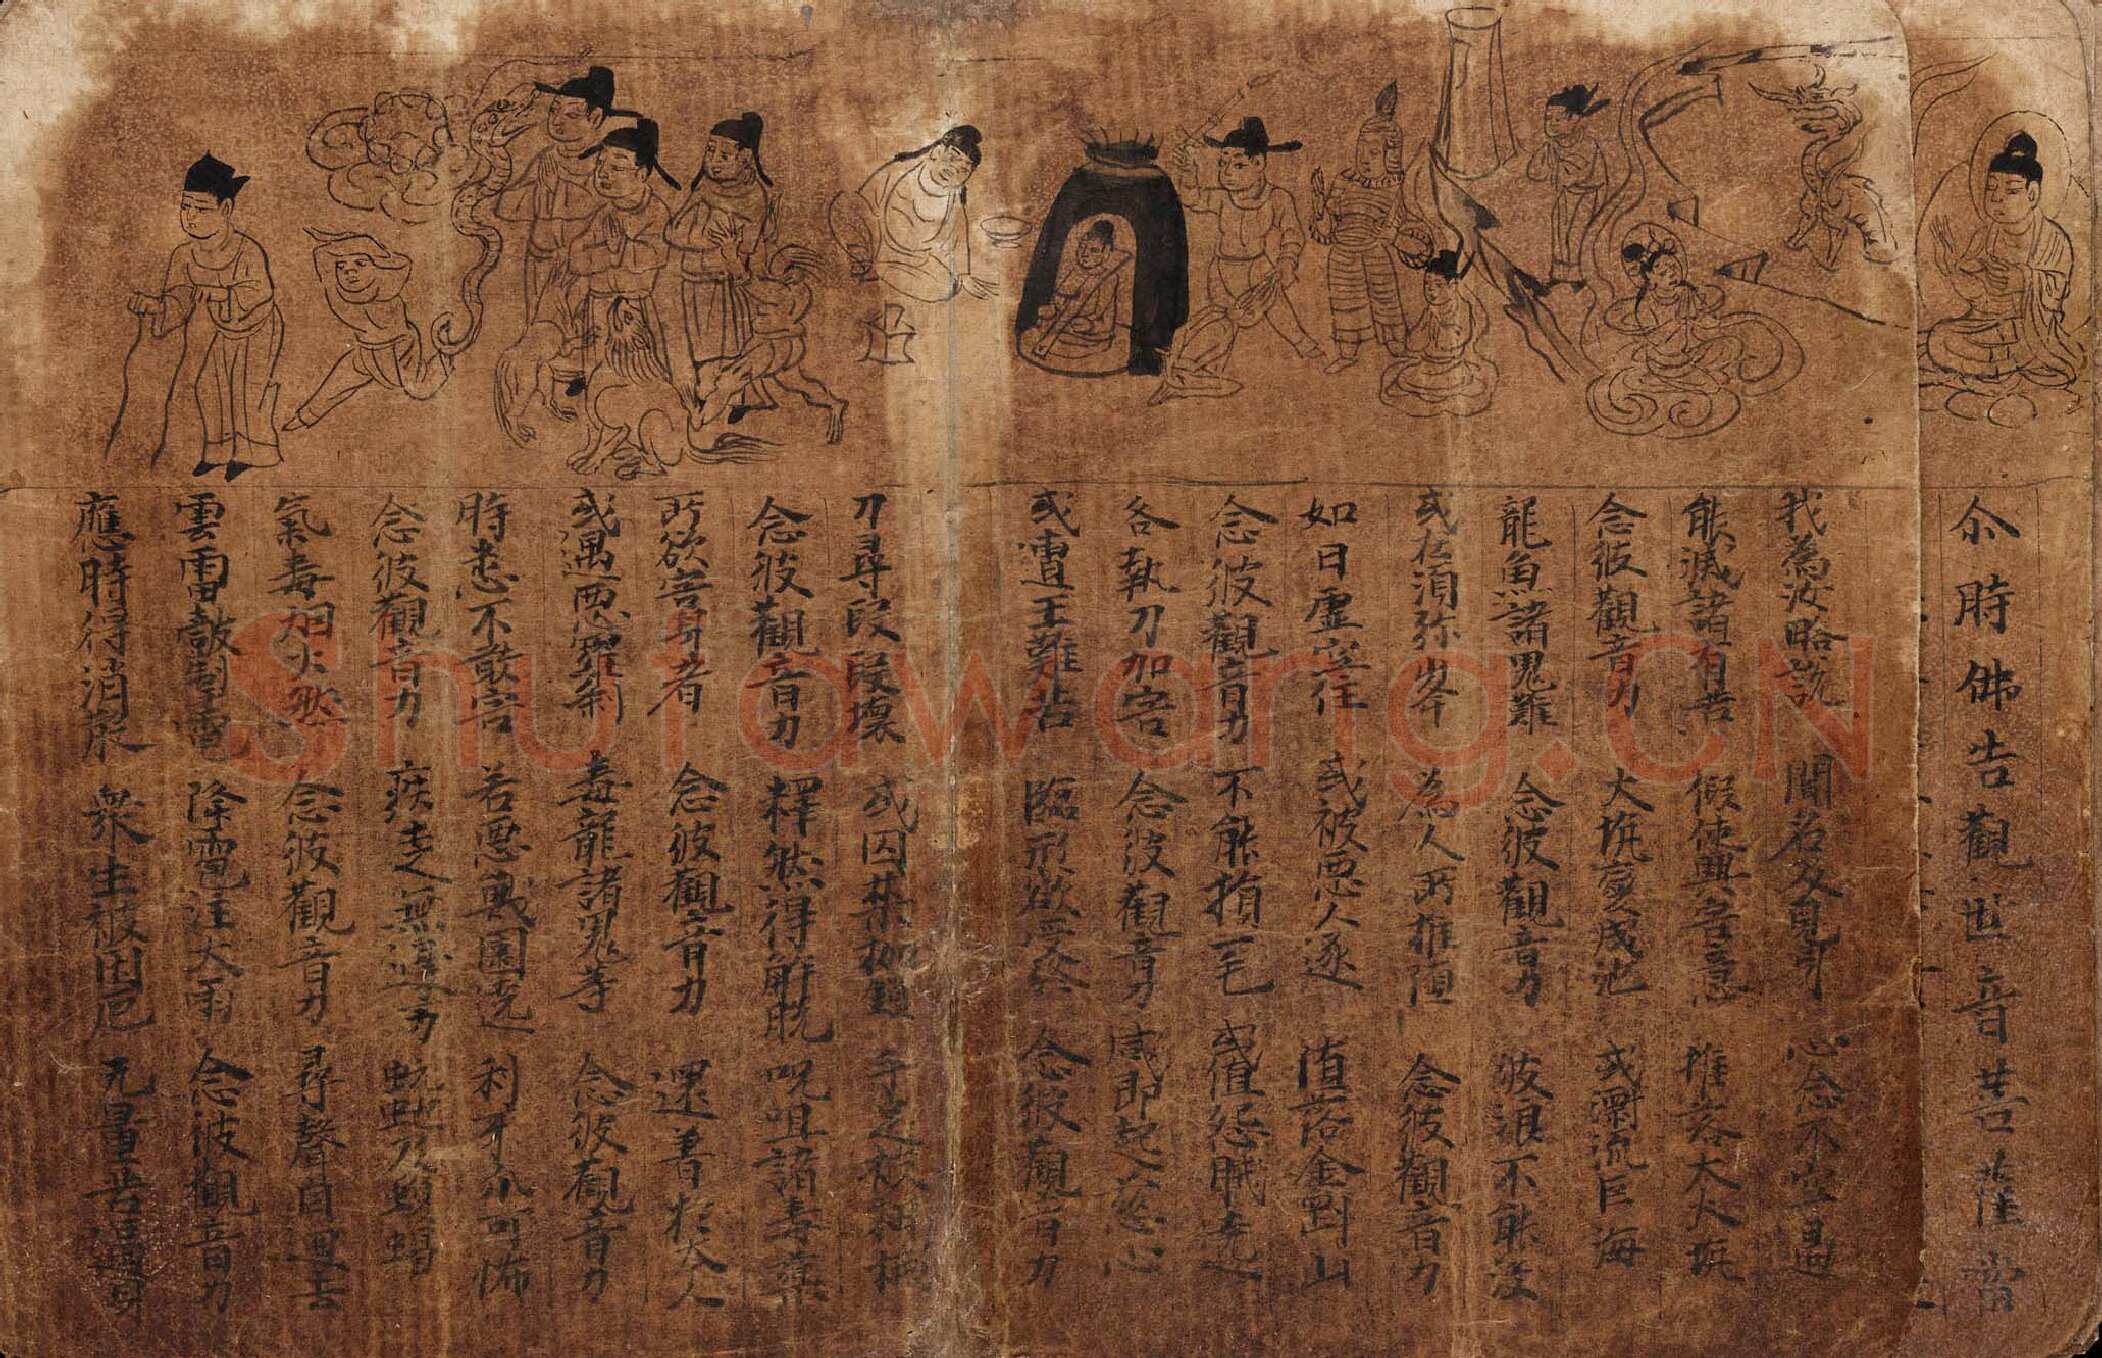 尒時佛告觀世音菩薩當
我為汝略說 聞名及見身 心念不空過
能滅諸有苦 假使興害意 推落大火坑
念彼觀音力 火坑變成池 或漂流巨海
龍魚諸鬼難 念彼觀音力 波浪不能沒
或在須弥峯 為人所推堕 念彼觀音力
如日虛空住 或被惡人逐 堕落金剛山
念彼觀音力 不能損一毛 或值怨賊遶
各執刀加害 念彼觀音力 咸即起慈心
或遭王難苦 臨刑欲壽終 念彼觀音力
刀尋段段壞 或囚禁枷鎖 手足被杻械
念彼觀音力 釋然得解脫 呪咀諸毒藥
所欲害身者 念彼觀音力 還著於本人
或遇惡羅剎 毒龍諸鬼等 念彼觀音力
時悉不敢害 若惡獸圍遶 利牙爪可怖
念彼觀音力 疾走無邊方 蚖蛇及蝮蝎
氣毒烟火然 念彼觀音力 尋聲自迴去
雲雷鼓掣電 降雹澍大雨 念彼觀音力
應時得消散 衆生被困厄 无量苦逼身
Shufawang.CN